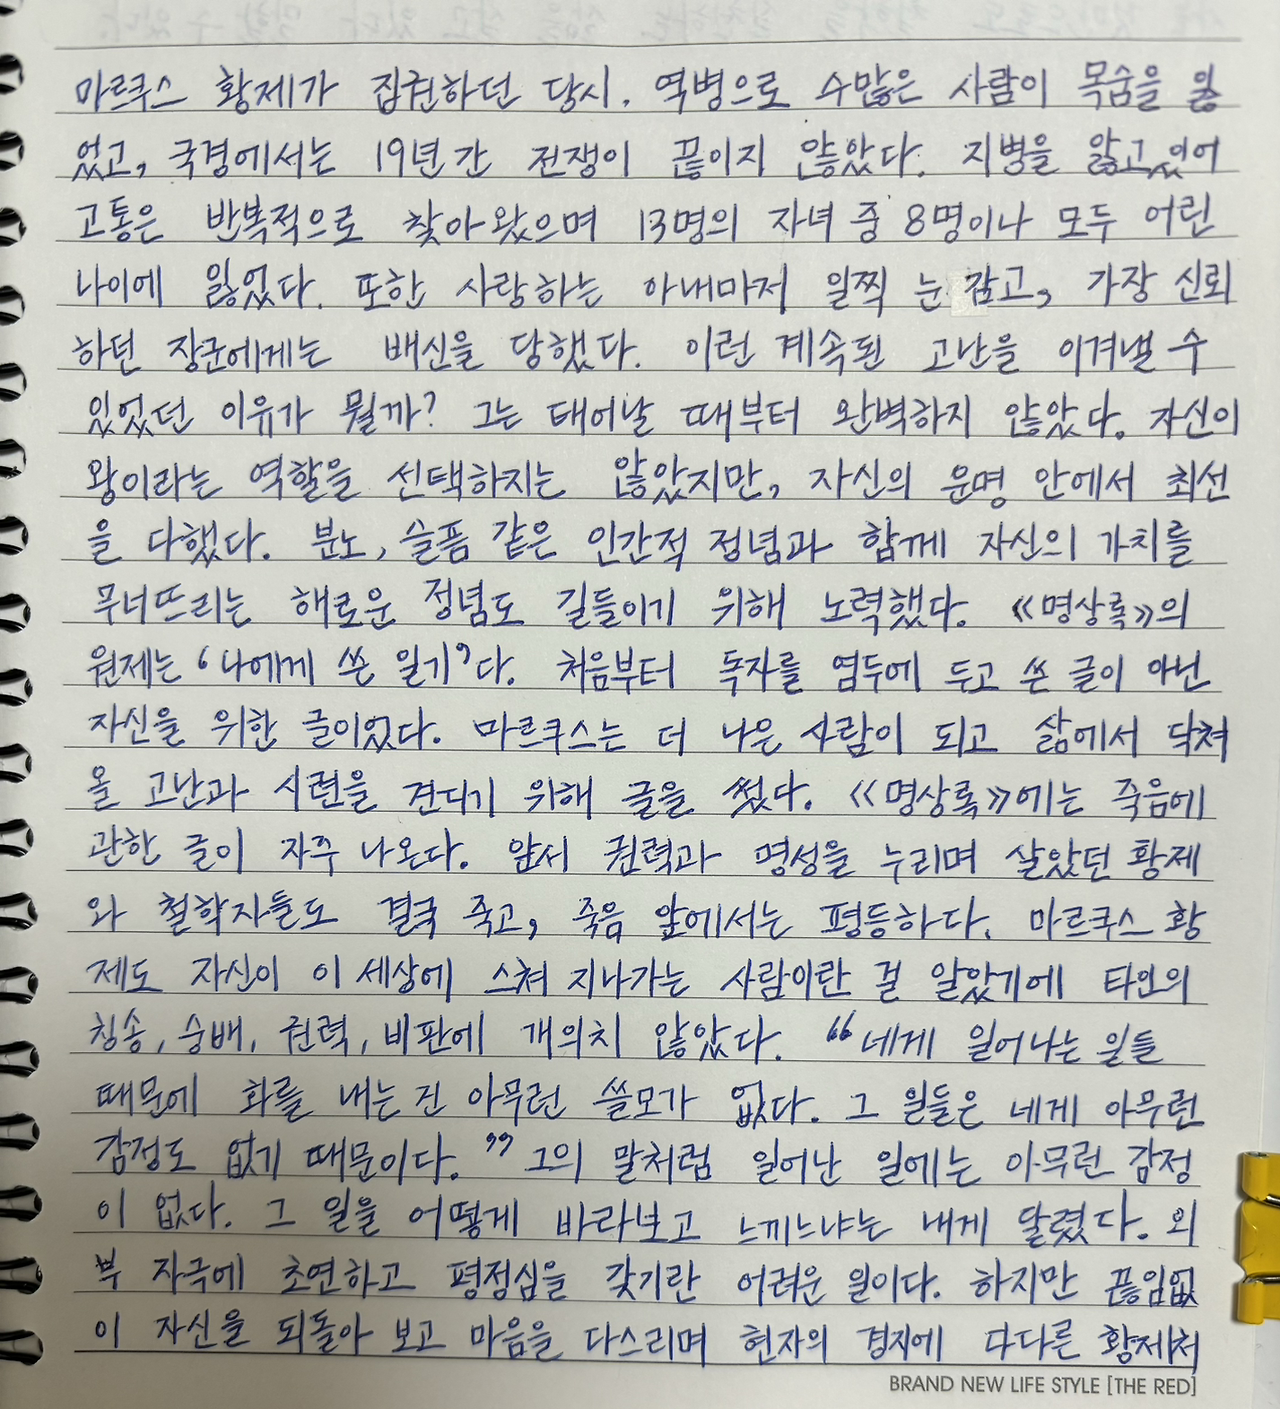 마르쿠스 황제가 집권하던 당시, 역병으로 수많은 사람이 목숨을 잃
었고, 국경에서는 19년간 전쟁이 끊이지 않았다. 지병을 앓고 있어
고통은 반복적으로 찾아왔으며 13명의 자녀 중 8명이나 모두 어린
나이에 잃었다. 또한 사랑하는 아내마저 일찍 눈 감고, 가장 신뢰
하던 장군에게는 배신을 당했다. 이런 계속된 고난을 이겨낼 수
있었던 이유가 뭘까? 그는 태어날 때부터 완벽하지 않았다. 자신이
왕이라는 역할을 선택하지는 않았지만, 자신의 운명 안에서 최선
을 다했다. 분노, 슬픔 같은 인간적 정념과 함께 자신의 가치를
무너뜨리는 해로운 정념도 길들이기 위해 노력했다. 《명상록》의
원제는 '나에게 쓴 일기'다. 처음부터 독자를 염두에 두고 쓴 글이 아닌
자신을 위한 글이었다. 마르쿠스는 더 나은 사람이 되고 삶에서 닥쳐
올 고난과 시련을 견디기 위해 글을 썼다. 《명상록》에는 죽음에
관한 글이 자주 나온다. 앞서 권력과 명성을 누리며 살았던 황제
와 철학자들도 결국 죽고, 죽음 앞에서는 평등하다. 마르쿠스 황
제도 자신이 이 세상에 스쳐 지나가는 사람이란 걸 알았기에 타인의
칭송, 숭배, 권력, 비판에 개의치 않았다. "네게 일어나는 일들
때문에 화를 내는 건 아무런 쓸모가 없다. 그 일들은 네게 아무런
감정도 없기 때문이다." 그의 말처럼 일어난 일에는 아무런 감정
이 없다. 그 일을 어떻게 바라보고 느끼느냐는 내게 달렸다. 외
부 자극에 초연하고 평정심을 갖기란 어려운 일이다. 하지만 끊임없
이 자신을 되돌아 보고 마음을 다스리며 현자의 경지에 다다른 황제처
BRAND NEW LIFE STYLE [THE RED]